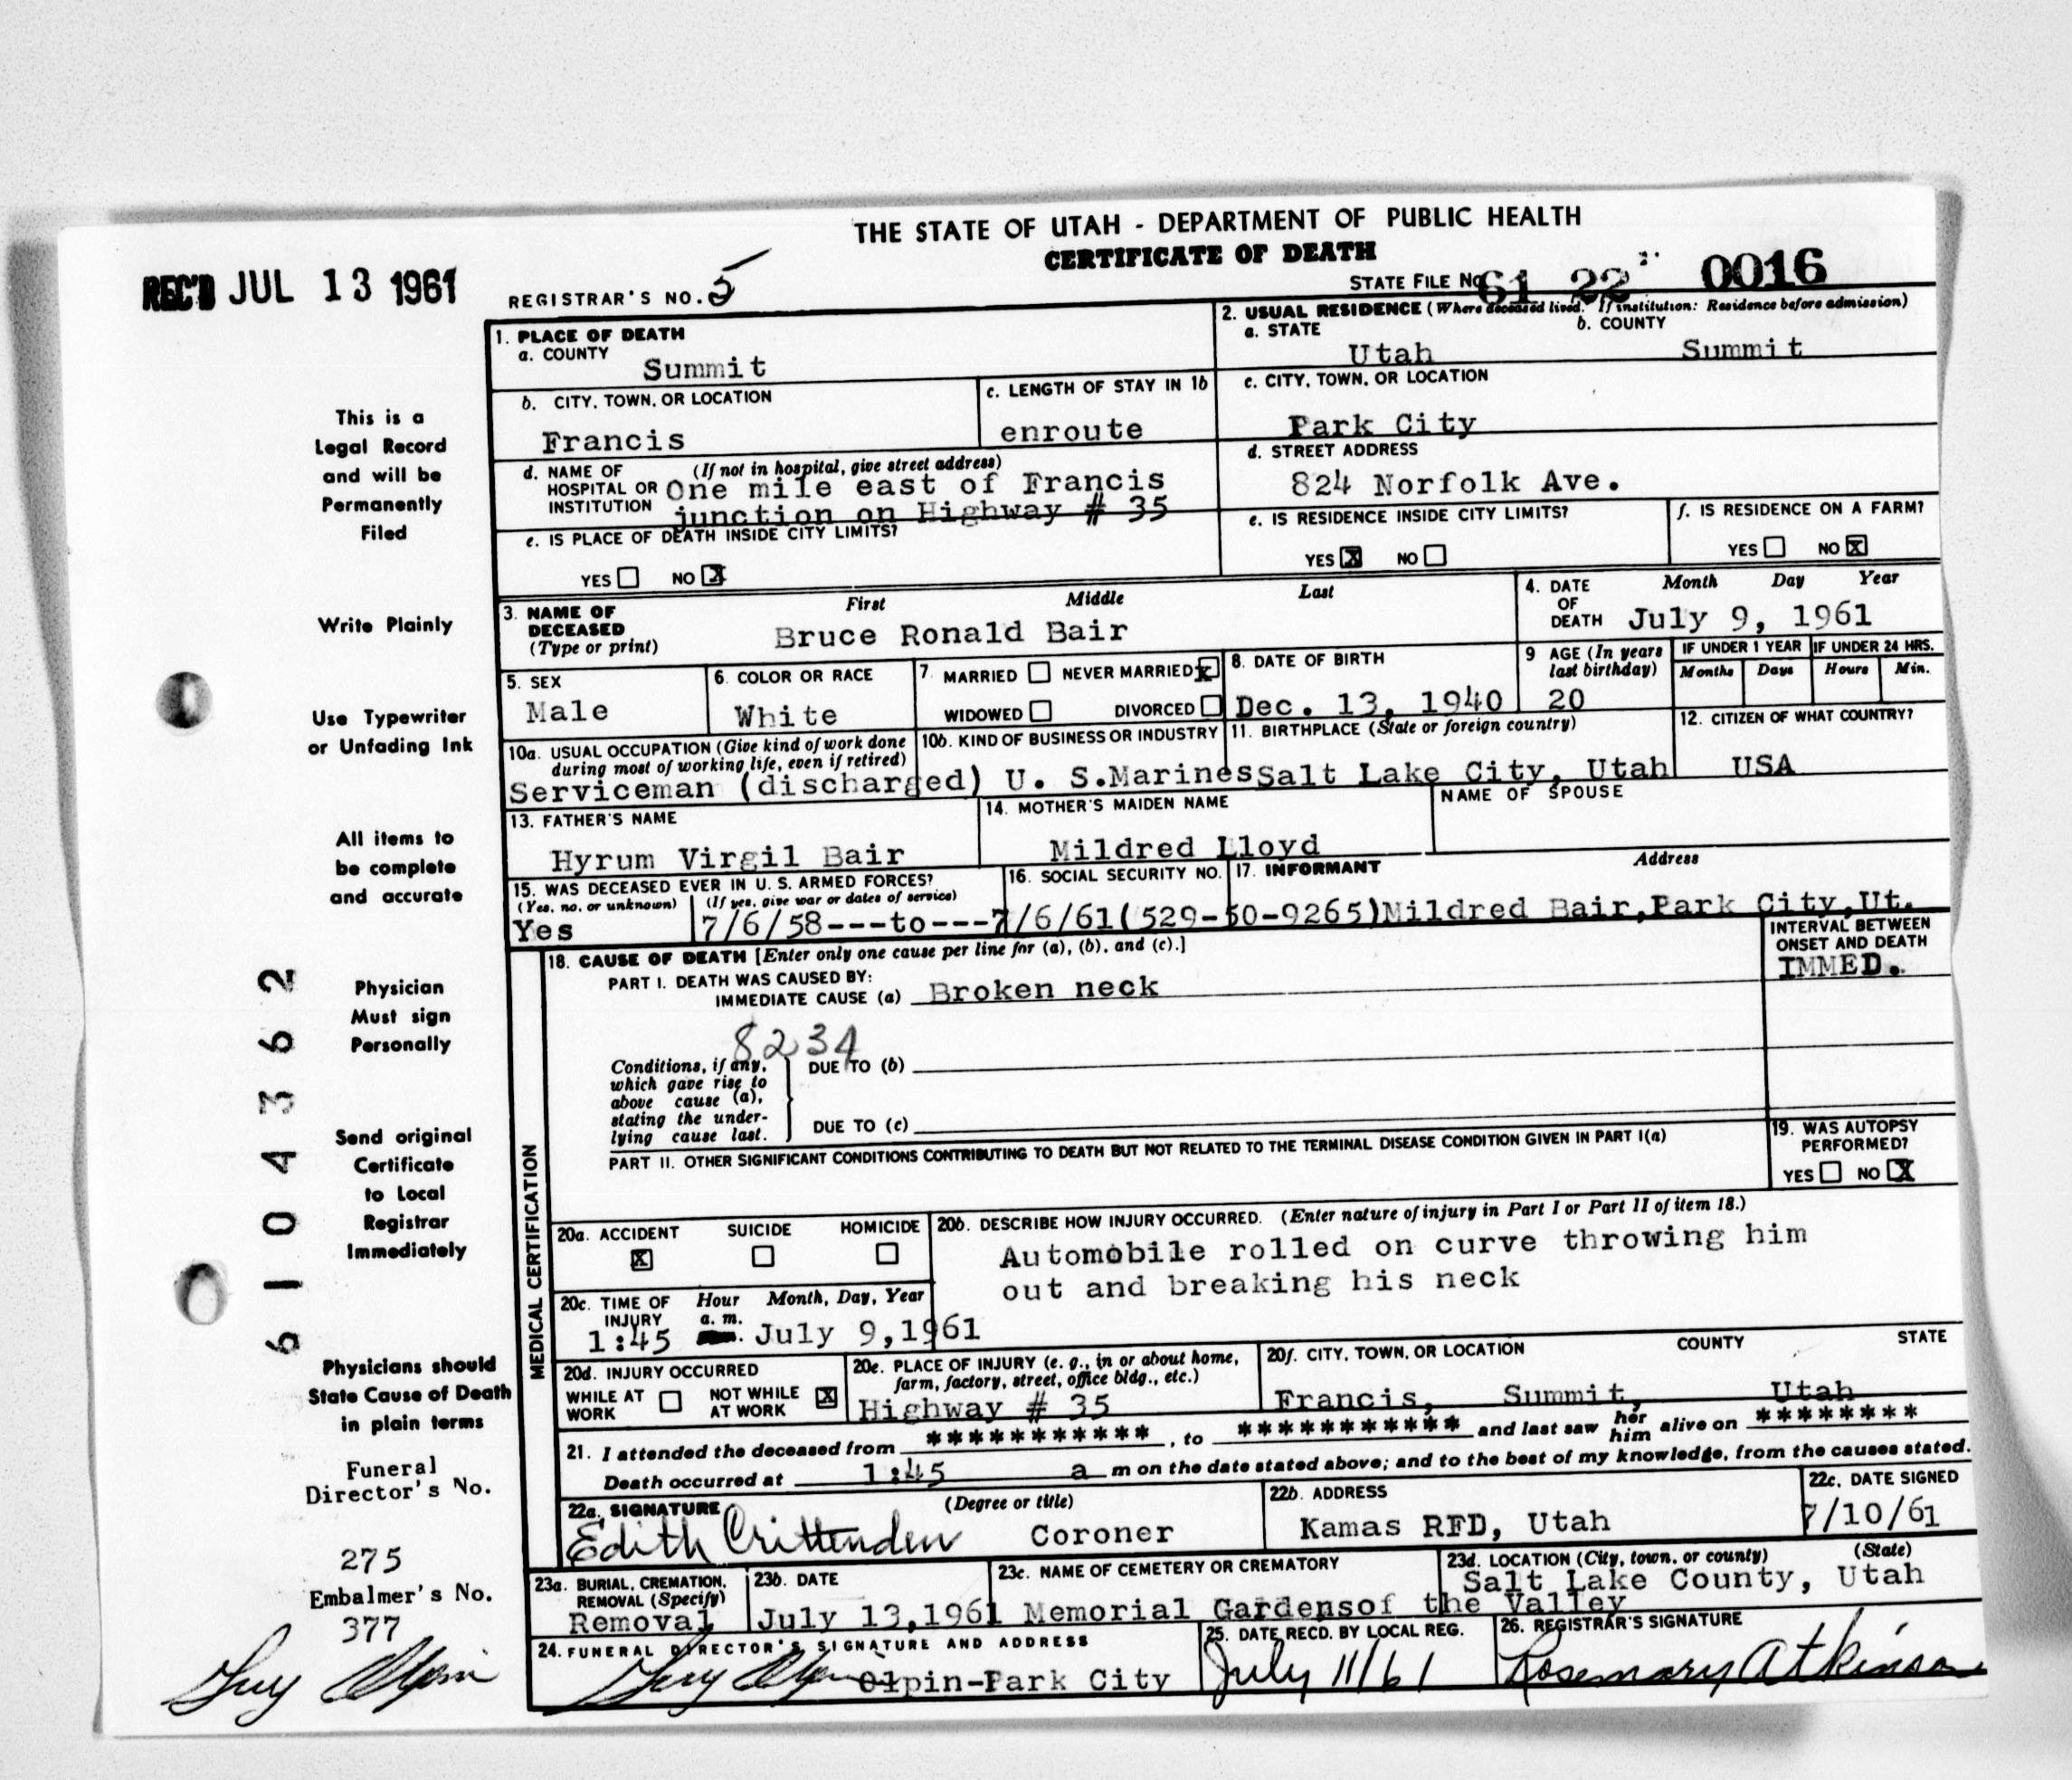 THE STATE OF UTAH - DEPARTMENT OF PUBLIC HEALTH
CERTIFICATE OF DEATH
REC'D JUL 13 1961
REGISTRAR'S NO. 5
STATE FILE NO. 61 22 0016
1. PLACE OF DEATH
a. COUNTY
Summit
2. USUAL RESIDENCE (Where deceased lived. If institution: Residence before admission)
a. STATE
Utah
b. COUNTY
Summit
b. CITY, TOWN, OR LOCATION
Francis
c. LENGTH OF STAY IN 1b
enroute
c. CITY, TOWN, OR LOCATION
Park City
d. NAME OF HOSPITAL OR INSTITUTION (If not in hospital, give street address)
One mile east of Francis
junction on Highway # 35
d. STREET ADDRESS
824 Norfolk Ave.
e. IS PLACE OF DEATH INSIDE CITY LIMITS?
YES NO X
e. IS RESIDENCE INSIDE CITY LIMITS?
YES X NO
f. IS RESIDENCE ON A FARM?
YES NO X
3. NAME OF DECEASED (Type or print)
First Middle Last
Bruce Ronald Bair
4. DATE OF DEATH Month Day Year
July 9, 1961
5. SEX
Male
6. COLOR OR RACE
White
7. MARRIED NEVER MARRIED x
WIDOWED DIVORCED
8. DATE OF BIRTH
Dec. 13, 1940
9 AGE (In years last birthday)
20
IF UNDER 1 YEAR
Months Days
IF UNDER 24 HRS.
Hours Min.
10a. USUAL OCCUPATION (Give kind of work done during most of working life, even if retired)
Serviceman (discharged)
10b. KIND OF BUSINESS OR INDUSTRY
U. S.Marines
11. BIRTHPLACE (State or foreign country)
Salt Lake City, Utah
12. CITIZEN OF WHAT COUNTRY?
USA
13. FATHER'S NAME
Hyrum Virgil Bair
14. MOTHER'S MAIDEN NAME
Mildred Lloyd
NAME OF SPOUSE
15. WAS DECEASED EVER IN U. S. ARMED FORCES?
(Yes, no, or unknown) (If yes, give war or dates of service)
Yes 7/6/58---to---7/6/61
16. SOCIAL SECURITY NO.
(529-50-9265)
17. INFORMANT Address
Mildred Bair,Park City,Ut.
MEDICAL CERTIFICATION
18. CAUSE OF DEATH [Enter only one cause per line for (a), (b), and (c).]
PART I. DEATH WAS CAUSED BY:
IMMEDIATE CAUSE (a) Broken neck
INTERVAL BETWEEN ONSET AND DEATH
IMMED.
8234
Conditions, if any, which gave rise to above cause (a), stating the underlying cause last.
DUE TO (b)
DUE TO (c)
PART II. OTHER SIGNIFICANT CONDITIONS CONTRIBUTING TO DEATH BUT NOT RELATED TO THE TERMINAL DISEASE CONDITION GIVEN IN PART I(a)
19. WAS AUTOPSY PERFORMED?
YES NO X
20a. ACCIDENT SUICIDE HOMICIDE
X
20b. DESCRIBE HOW INJURY OCCURRED. (Enter nature of injury in Part I or Part II of item 18.)
Automobile rolled on curve throwing him
out and breaking his neck
20c. TIME OF INJURY Hour Month, Day, Year
1:45 a. m. July 9,1961
20d. INJURY OCCURRED
WHILE AT WORK NOT WHILE AT WORK X
20e. PLACE OF INJURY (e. g., in or about home, farm, factory, street, office bldg., etc.)
Highway # 35
20f. CITY, TOWN, OR LOCATION COUNTY STATE
Francis, Summit, Utah
21. I attended the deceased from *********** , to *********** and last saw her him alive on ********
Death occurred at 1:45 a m on the date stated above; and to the best of my knowledge, from the causes stated.
22a. SIGNATURE (Degree or title)
Edith Crittenden Coroner
22b. ADDRESS
Kamas RFD, Utah
22c. DATE SIGNED
7/10/61
23a. BURIAL, CREMATION, REMOVAL (Specify)
Removal
23b. DATE
July 13,1961
23c. NAME OF CEMETERY OR CREMATORY
Memorial Gardensof the Valley
23d. LOCATION (City, town, or county) (State)
Salt Lake County, Utah
24. FUNERAL DIRECTOR'S SIGNATURE AND ADDRESS
Olpin-Park City
25. DATE RECD. BY LOCAL REG.
July 11/61
26. REGISTRAR'S SIGNATURE
Rosemary Atkinson
This is a
Legal Record
and will be
Permanently
Filed
Write Plainly
Use Typewriter
or Unfading Ink
All items to
be complete
and accurate
Physician
Must sign
Personally
Send original
Certificate
to Local
Registrar
Immediately
Physicians should
State Cause of Death
in plain terms
Funeral
Director's No.
275
Embalmer's No.
377
6104362